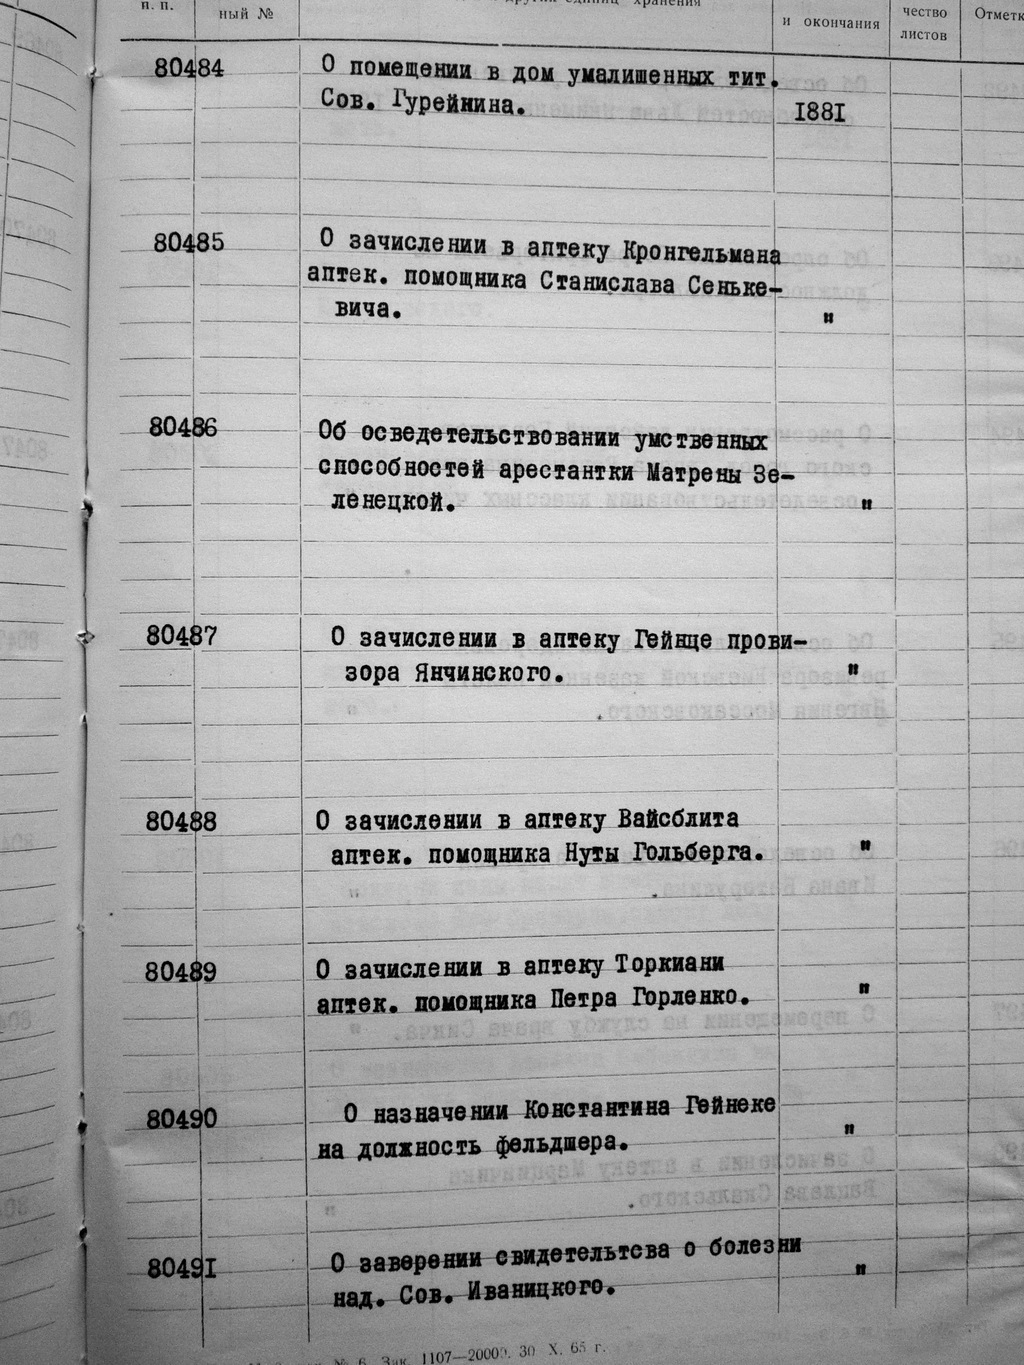 п. п.
ный №
других единиц хранения
и окончания
чество
листов
80484
О помещении в дом умалишенных тит.
Сов. Гурейнина.
I88I
80485
О зачислении в аптеку Кронгельмана
аптек. помощника Станислава Сеньке-
вича.
"
80486
Об осведетельствовании умственных
способностей арестантки Матрены Зе-
ленецкой.
"
80487
О зачислении в аптеку Гейнце прови-
зора Янчинского.
"
80488
О зачислении в аптеку Вайсблита
аптек. помощника Нуты Гольберга.
"
80489
О зачислении в аптеку Торкиани
аптек. помощника Петра Горленко.
"
80490
О назначении Константина Гейнеке
на должность фельдшера.
"
8049I
О заверении свидетельтсва о болезни
над. Сов. Иваницкого.
"
№ 6. Зак. 1107—20000. 30 X. 65 г.